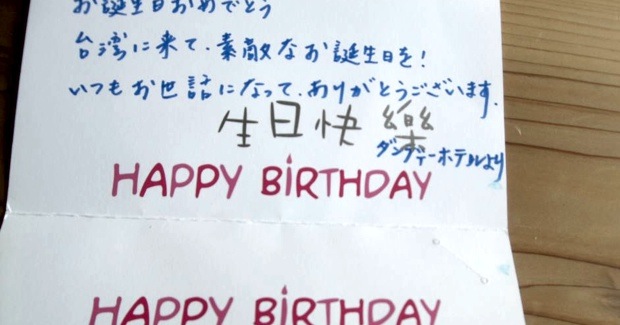 お誕生日おめでとう
台湾に来て、素敵なお誕生日を!
いつもお世話になって、ありがとうございます.
生日快樂
ダンディーホテルより
HAPPY BIRTHDAY
HAPPY BIRTHDAY